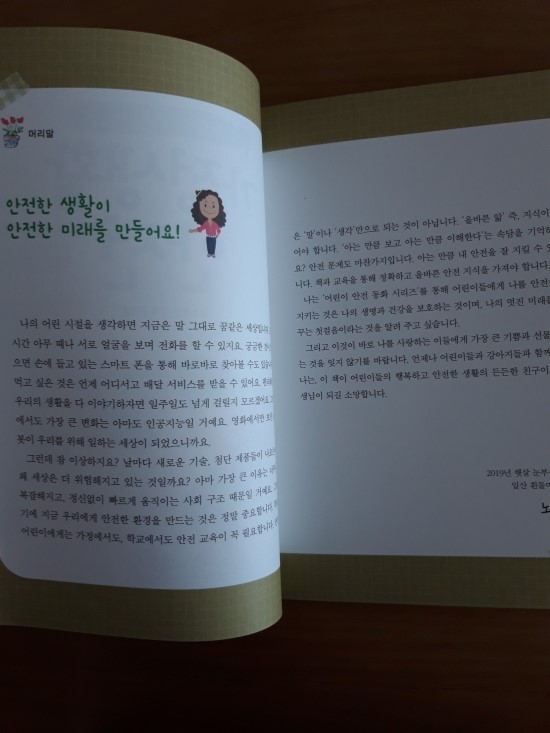 머리말
안전한 생활이
안전한 미래를 만들어요!
나의 어린 시절을 생각하면 지금은 말 그대로 꿈같은 세상입니다
시간 아무 때나 서로 얼굴을 보며 전화를 할 수 있지요. 궁금한
으면 손에 들고 있는 스마트 폰을 통해 바로바로 찾아볼 수도
먹고 싶은 것은 언제 어디서고 배달 서비스를 받을 수 있어요.
우리의 생활을 다 이야기하자면 일주일도 넘게 걸릴지 모르겠어요
에서도 가장 큰 변화는 아마도 인공지능일 거예요. 영화에서만
봇이 우리를 위해 일하는 세상이 되었으니까요.
그런데 참 이상하지요? 날마다 새로운 기술, 첨단 제품들이
왜 세상은 더 위험해지고 있는 것일까요? 아마 가장 큰 이유는
복잡해지고, 정신없이 빠르게 움직이는 사회 구조 때문일 거예요.
기에 지금 우리에게 안전한 환경을 만드는 것은 정말 중요합니다.
어린이에게는 가정에서도, 학교에서도 안전 교육이 꼭 필요합니다.
은 '말'이나 '생각'만으로 되는 것이 아닙니다. '올바른 앎' 즉, 지식이
어야 합니다. '아는 만큼 보고 아는 만큼 이해한다'는 속담을 기억하
요? 안전 문제도 마찬가지입니다. 아는 만큼 내 안전을 잘 지킬 수
니다. 책과 교육을 통해 정확하고 올바른 안전 지식을 가져야 합니다.
나는 '어린이 안전 동화 시리즈'를 통해 어린이들에게 나를 안전
지키는 것은 나의 생명과 건강을 보호하는 것이며, 나의 멋진 미래를
꾸는 첫걸음이라는 것을 알려 주고 싶습니다.
그리고 이것이 바로 나를 사랑하는 이들에게 가장 큰 기쁨과 선물
는 것을 잊지 않기를 바랍니다. 언제나 어린이들과 강아지들과 함께
나는, 이 책이 어린이들의 행복하고 안전한 생활의 든든한 친구이
생님이 되길 소망합니다.
2019년 햇살 눈부
일산 흰돌
노